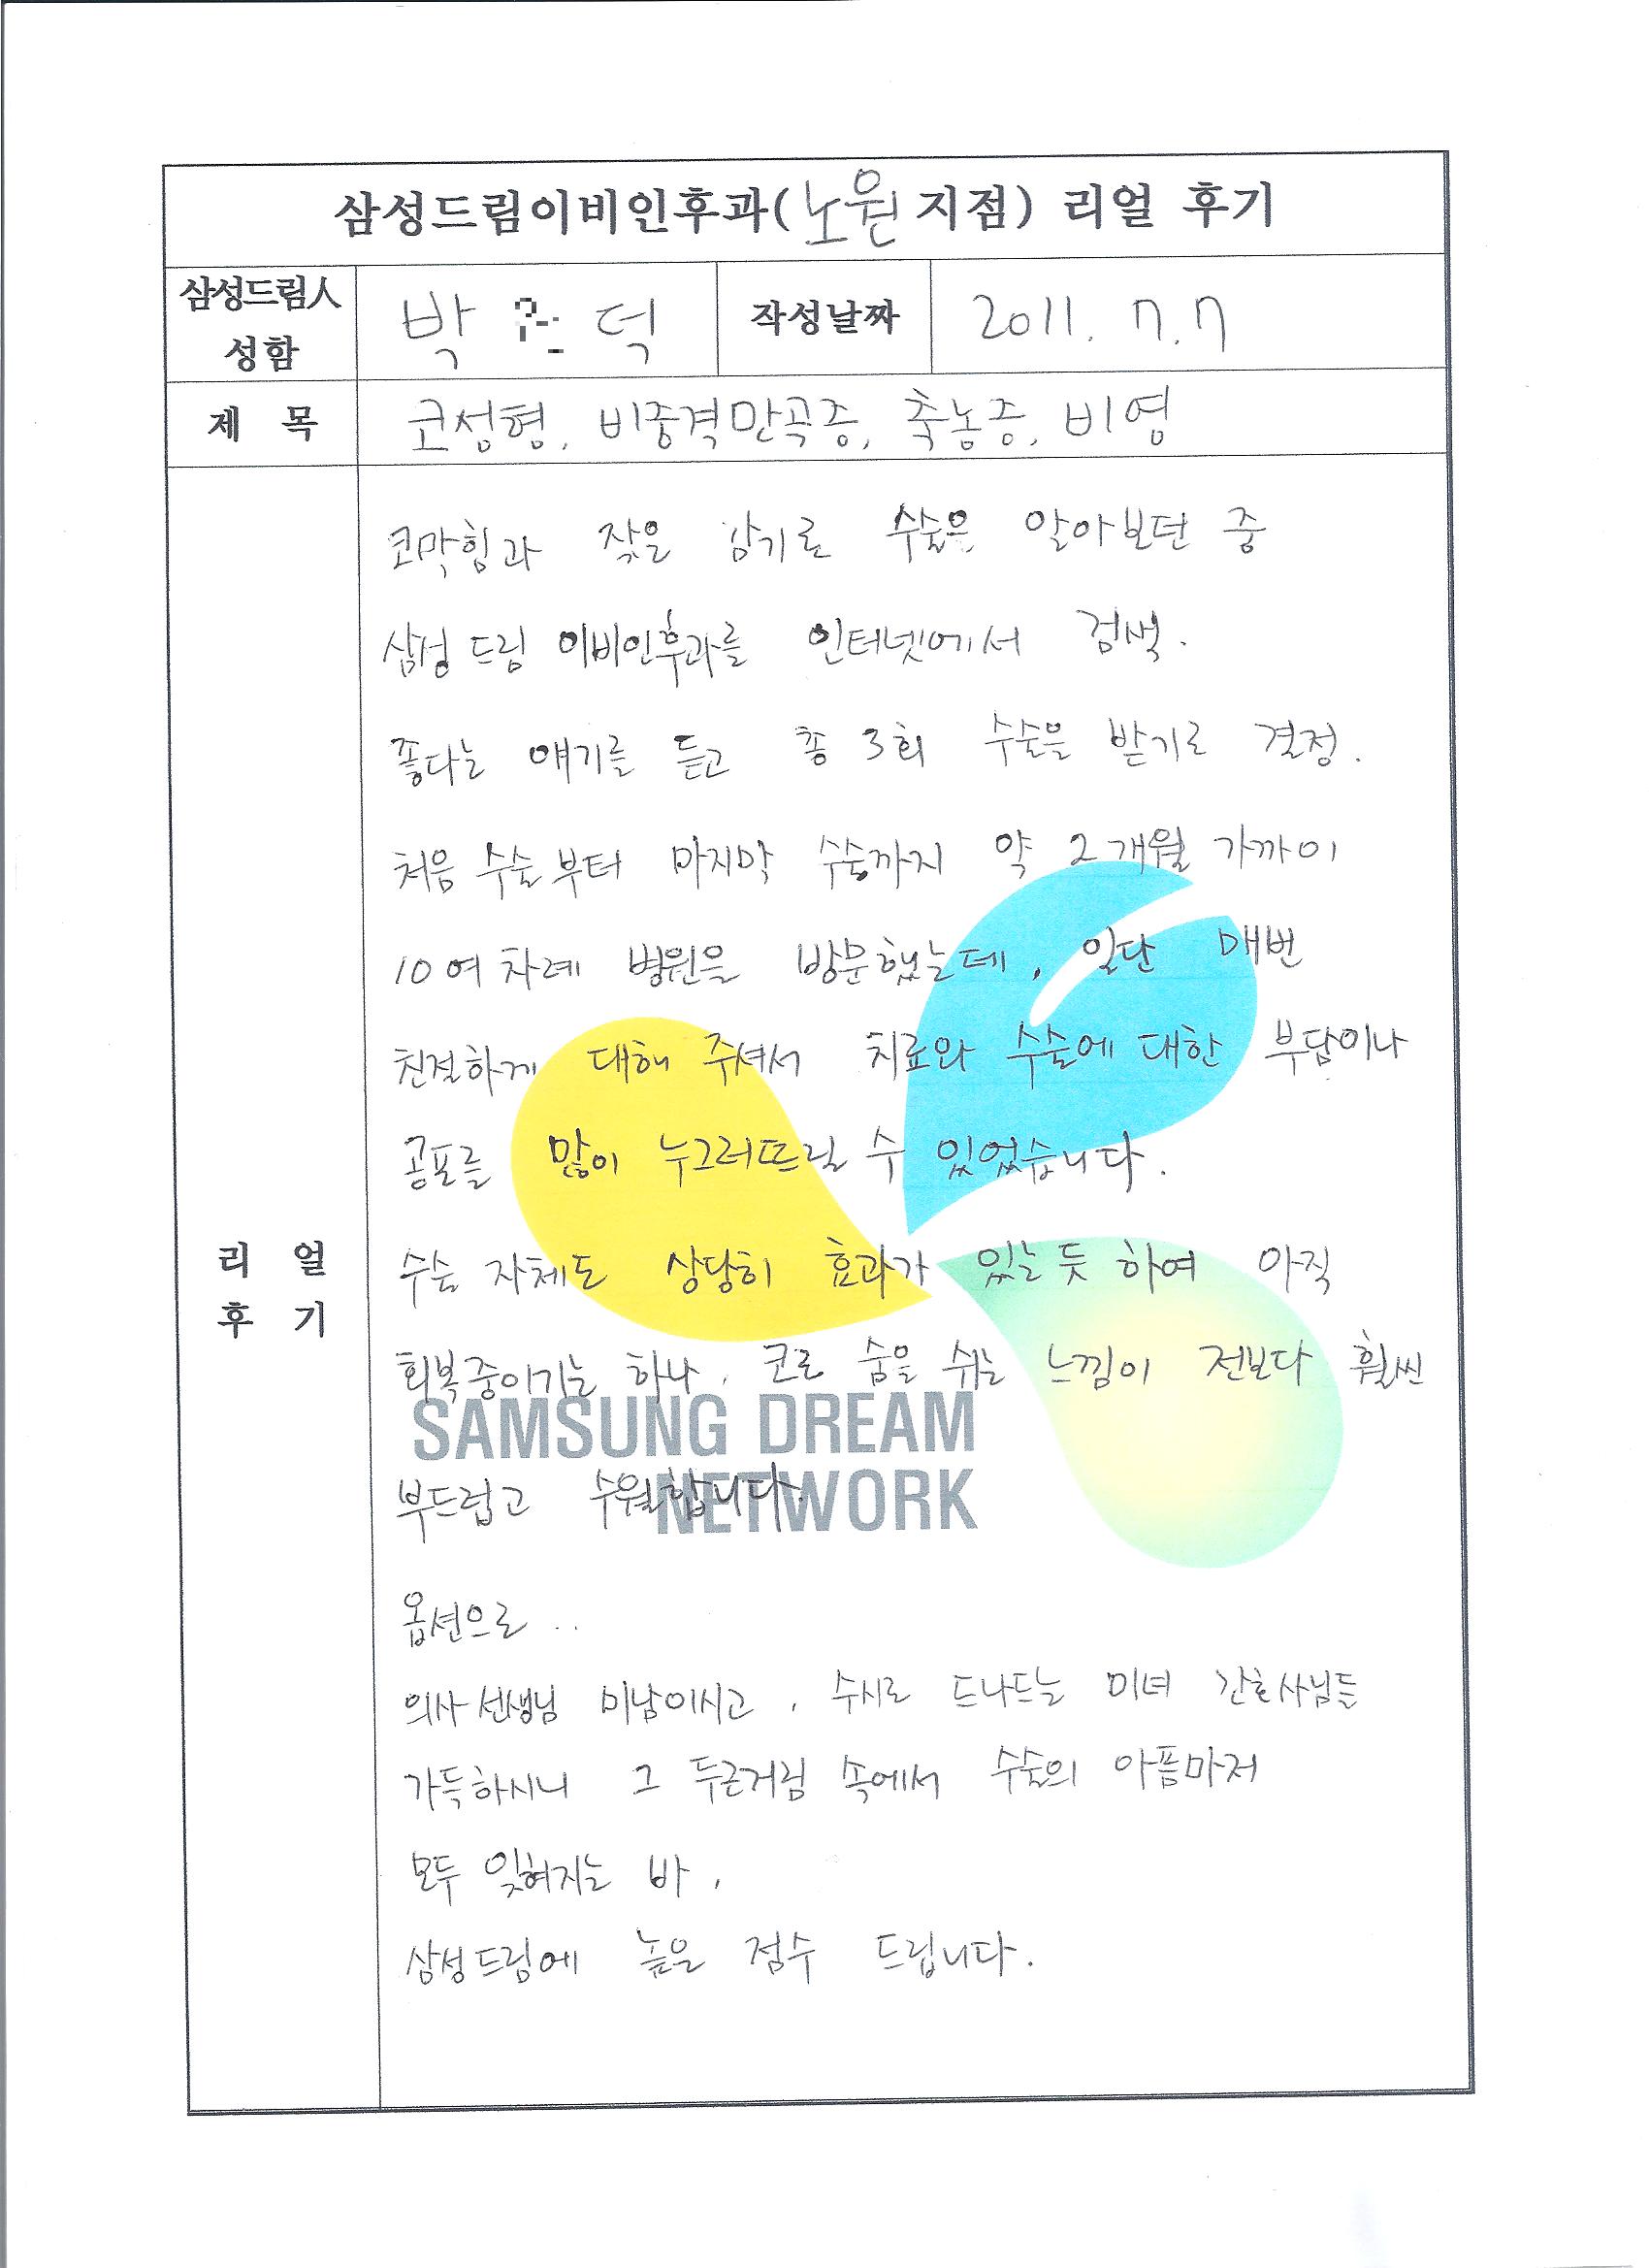 삼성드림이비인후과(노원 지점) 리얼 후기
삼성드림人 성함 박 덕 작성날짜 2011. 7. 7
제 목 코성형, 비중격만곡증, 축농증, 비염
코막힘과 잦은 감기로 수술은 알아보던 중
삼성드림 이비인후과를 인터넷에서 검색.
좋다는 얘기를 듣고 총 3회 수술을 받기로 결정.
처음 수술부터 마지막 수술까지 약 2개월 가까이
10여차례 병원을 방문했는데, 일단 매번
친절하게 대해 주셔서 치료와 수술에 대한 부담이나
공포를 많이 누그러뜨릴 수 있었습니다.
수술 자체도 상당히 효과가 있는듯 하여 아직
리 얼
후 기
회복중이기는 하나, 코로 숨을 쉬는 느낌이 전보다 훨씬
SAMSUNG DREAM
NETWORK
부드럽고 수월합니다.
옵션으로 ..
의사선생님 미남이시고, 수시로 드나드는 미녀 간호사님들
가득하시니 그 두근거림 속에서 수술의 아픔마저
모두 잊혀지는 바,
삼성드림에 높은 점수 드립니다.